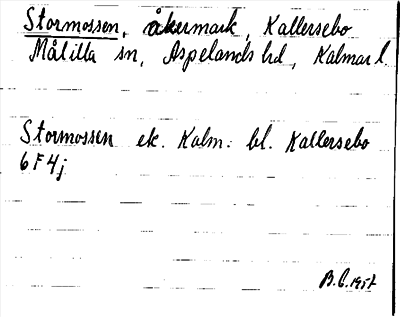 Stormossen, åkermark, Kallersebo
Målilla sn, Aspelands hd, Kalmar l.
Stormossen ek. Kalm. bl. Kallersebo
6 F 4 j
B.C. 1957